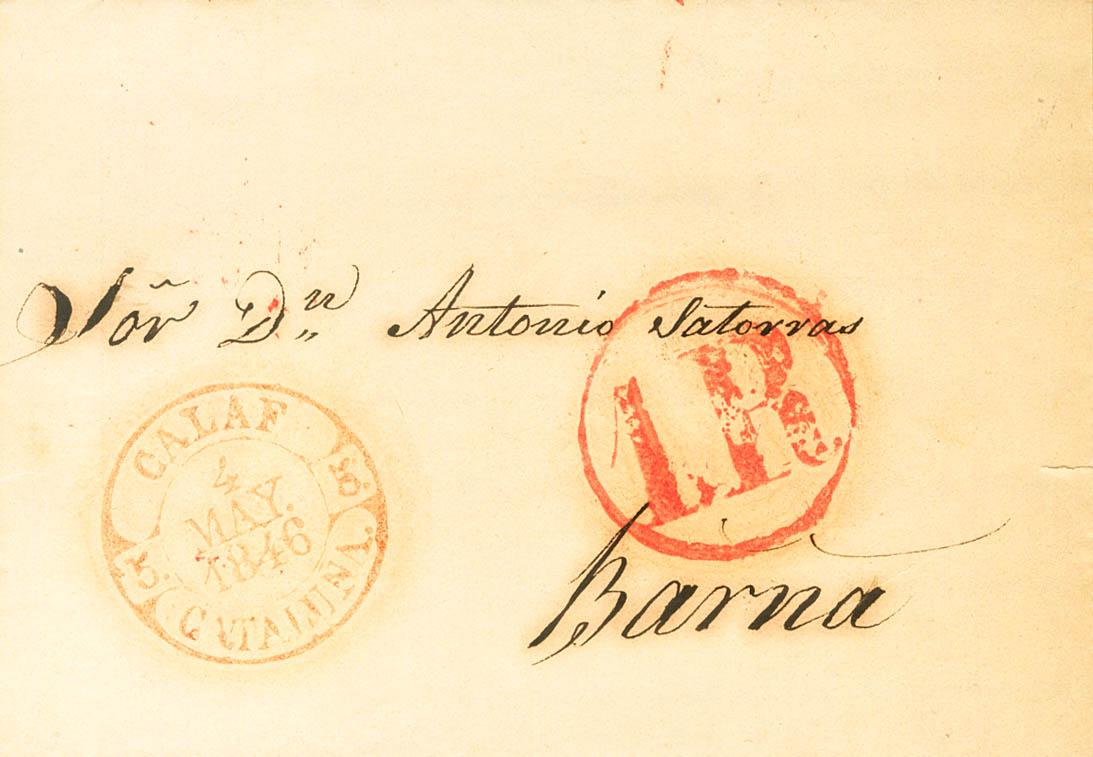 Sōr Dⁿ Antonio Satorras
1R.
CALAF
4
MAY.
1846
CATALUÑA
Barna